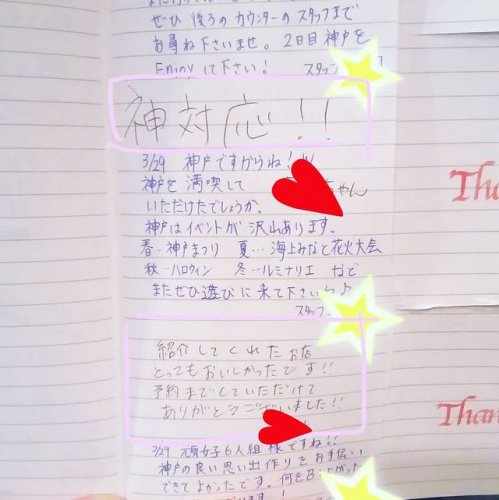 ぜひ 後ろの カウンターの スタッフまで
お尋ね下さいませ。2日目 神戸を
Enjoy して下さい! スタッフ
神対応!!
3/29 神戸ですからね!
神戸を 満喫して ちゃん
いただけたでしょうか。
神戸は イベントが 沢山あります。
春…神戸まつり 夏…海上みなと花火大会
秋…ハロウィン 冬…ルミナリエ など
またぜひ遊びに 来て下さいね♪
スタッフ
紹介してくれたお店
とってもおいしかったです!!
予約までしていただけて
ありがとうございました!!
3/29 元気女子6人組 様ですね!!
神戸の良い思い出作りをお手伝い
できてよかったです。何を召し上がった
Tha
Than